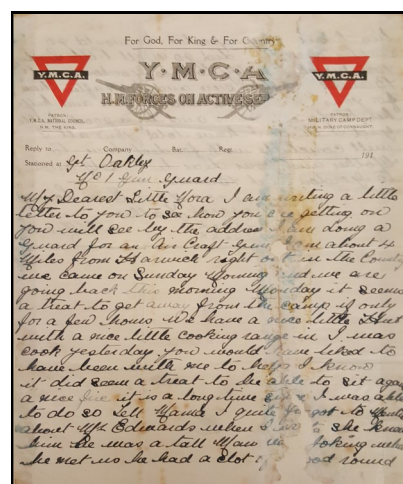 For God, For King & For Country
Y.M.C.A.
Y·M·C·A
Y.M.C.A.
H.M. FORCES ON ACTIVE SER
PATRON
Y.M.C.A. NATIONAL COUNCIL
H.M. THE KING.
PATRON
MILITARY CAMP DEPT
DUKE OF CONNAUGHT.
Reply to Company Bat. Regt.
Stationed at Gt Oakley 191
No 1 Gun Guard
My Dearest Little Nora I am writing a little
letter to you to see how you are getting on
you will see by the address I am doing a
Guard for an Air Craft Gun about 4
Miles from Harwick right out in the Country
we came on Sunday Morning and we are
going back this morning Monday it seems
a treat to get away from the camp if only
for a few hours We have a nice little Hut
with a nice little cooking range in I was
cook yesterday you would have liked to
have been with me to help I know
it did seem a treat to be able to sit again
a nice fire it is a long time since I was able
to do so tell Mama I quite forgot to
about Mr Edwards when I to she know
him he was a tall Man looking when
he met us he had a clot round